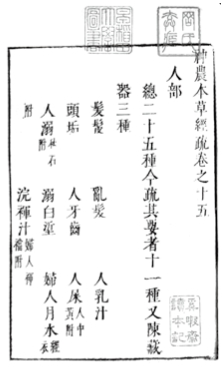 神農本草經疏卷之十五
人部
總二十五種今疏其要者十一種又陳藏
器三種
髮髲 亂髮 人乳汁
頭垢 人牙齒 人屎人中黃附
人溺秋石附 溺白垽 婦人月水經衣
附 浣褌汁婦人褌襠附